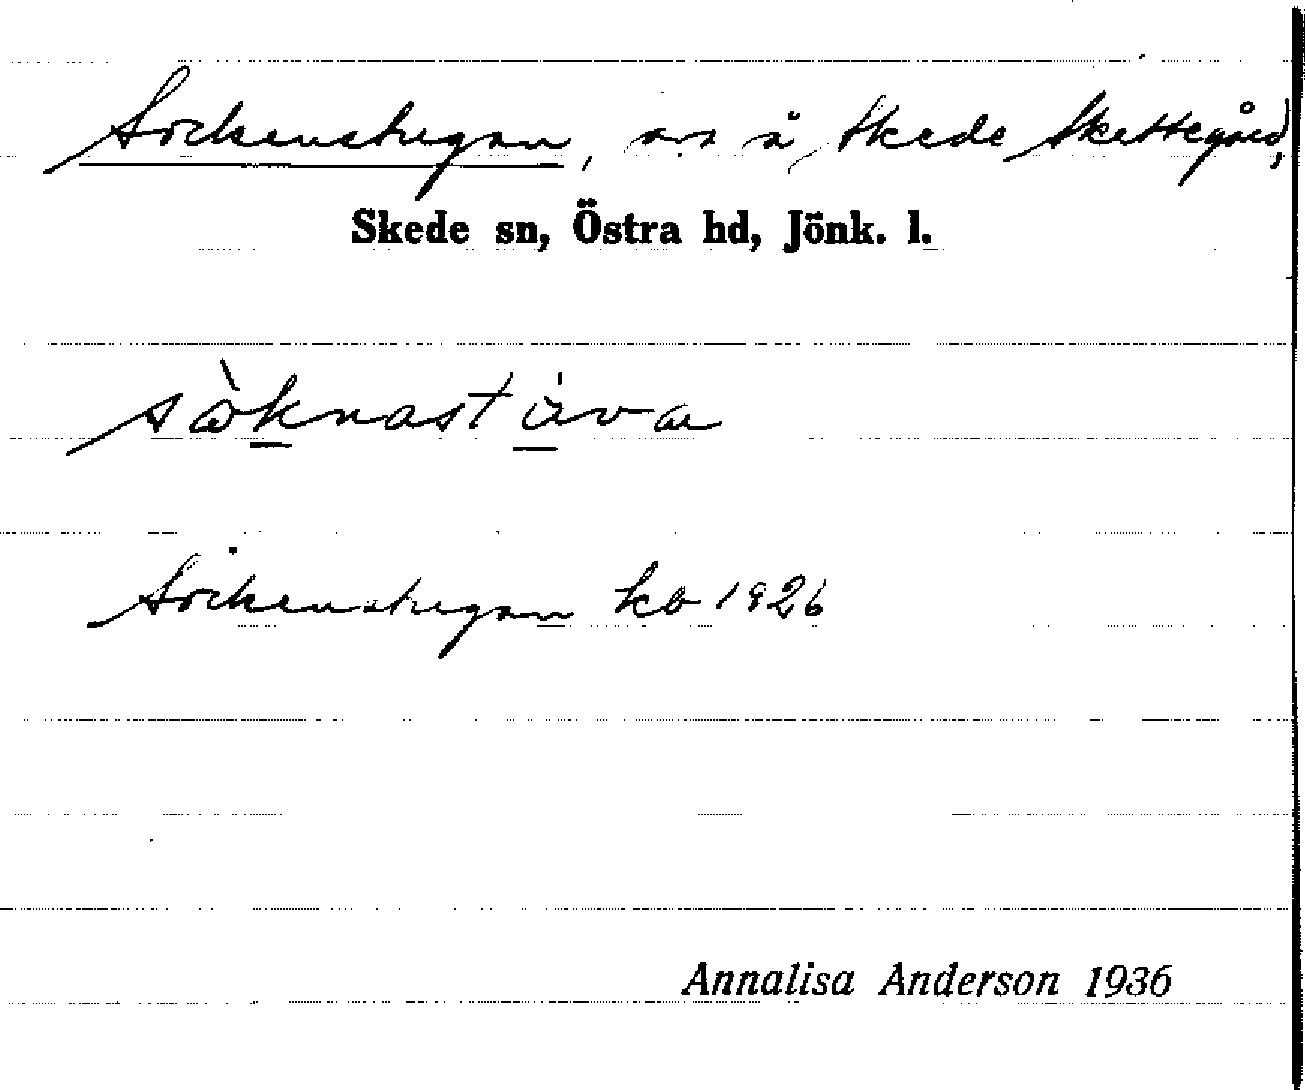 Sockenstugan, ss å Skede Skattegård,
Skede sn, Östra hd, Jönk. l.
sòknastáva
Sockenstugan kb 1926
Annalisa Anderson 1936